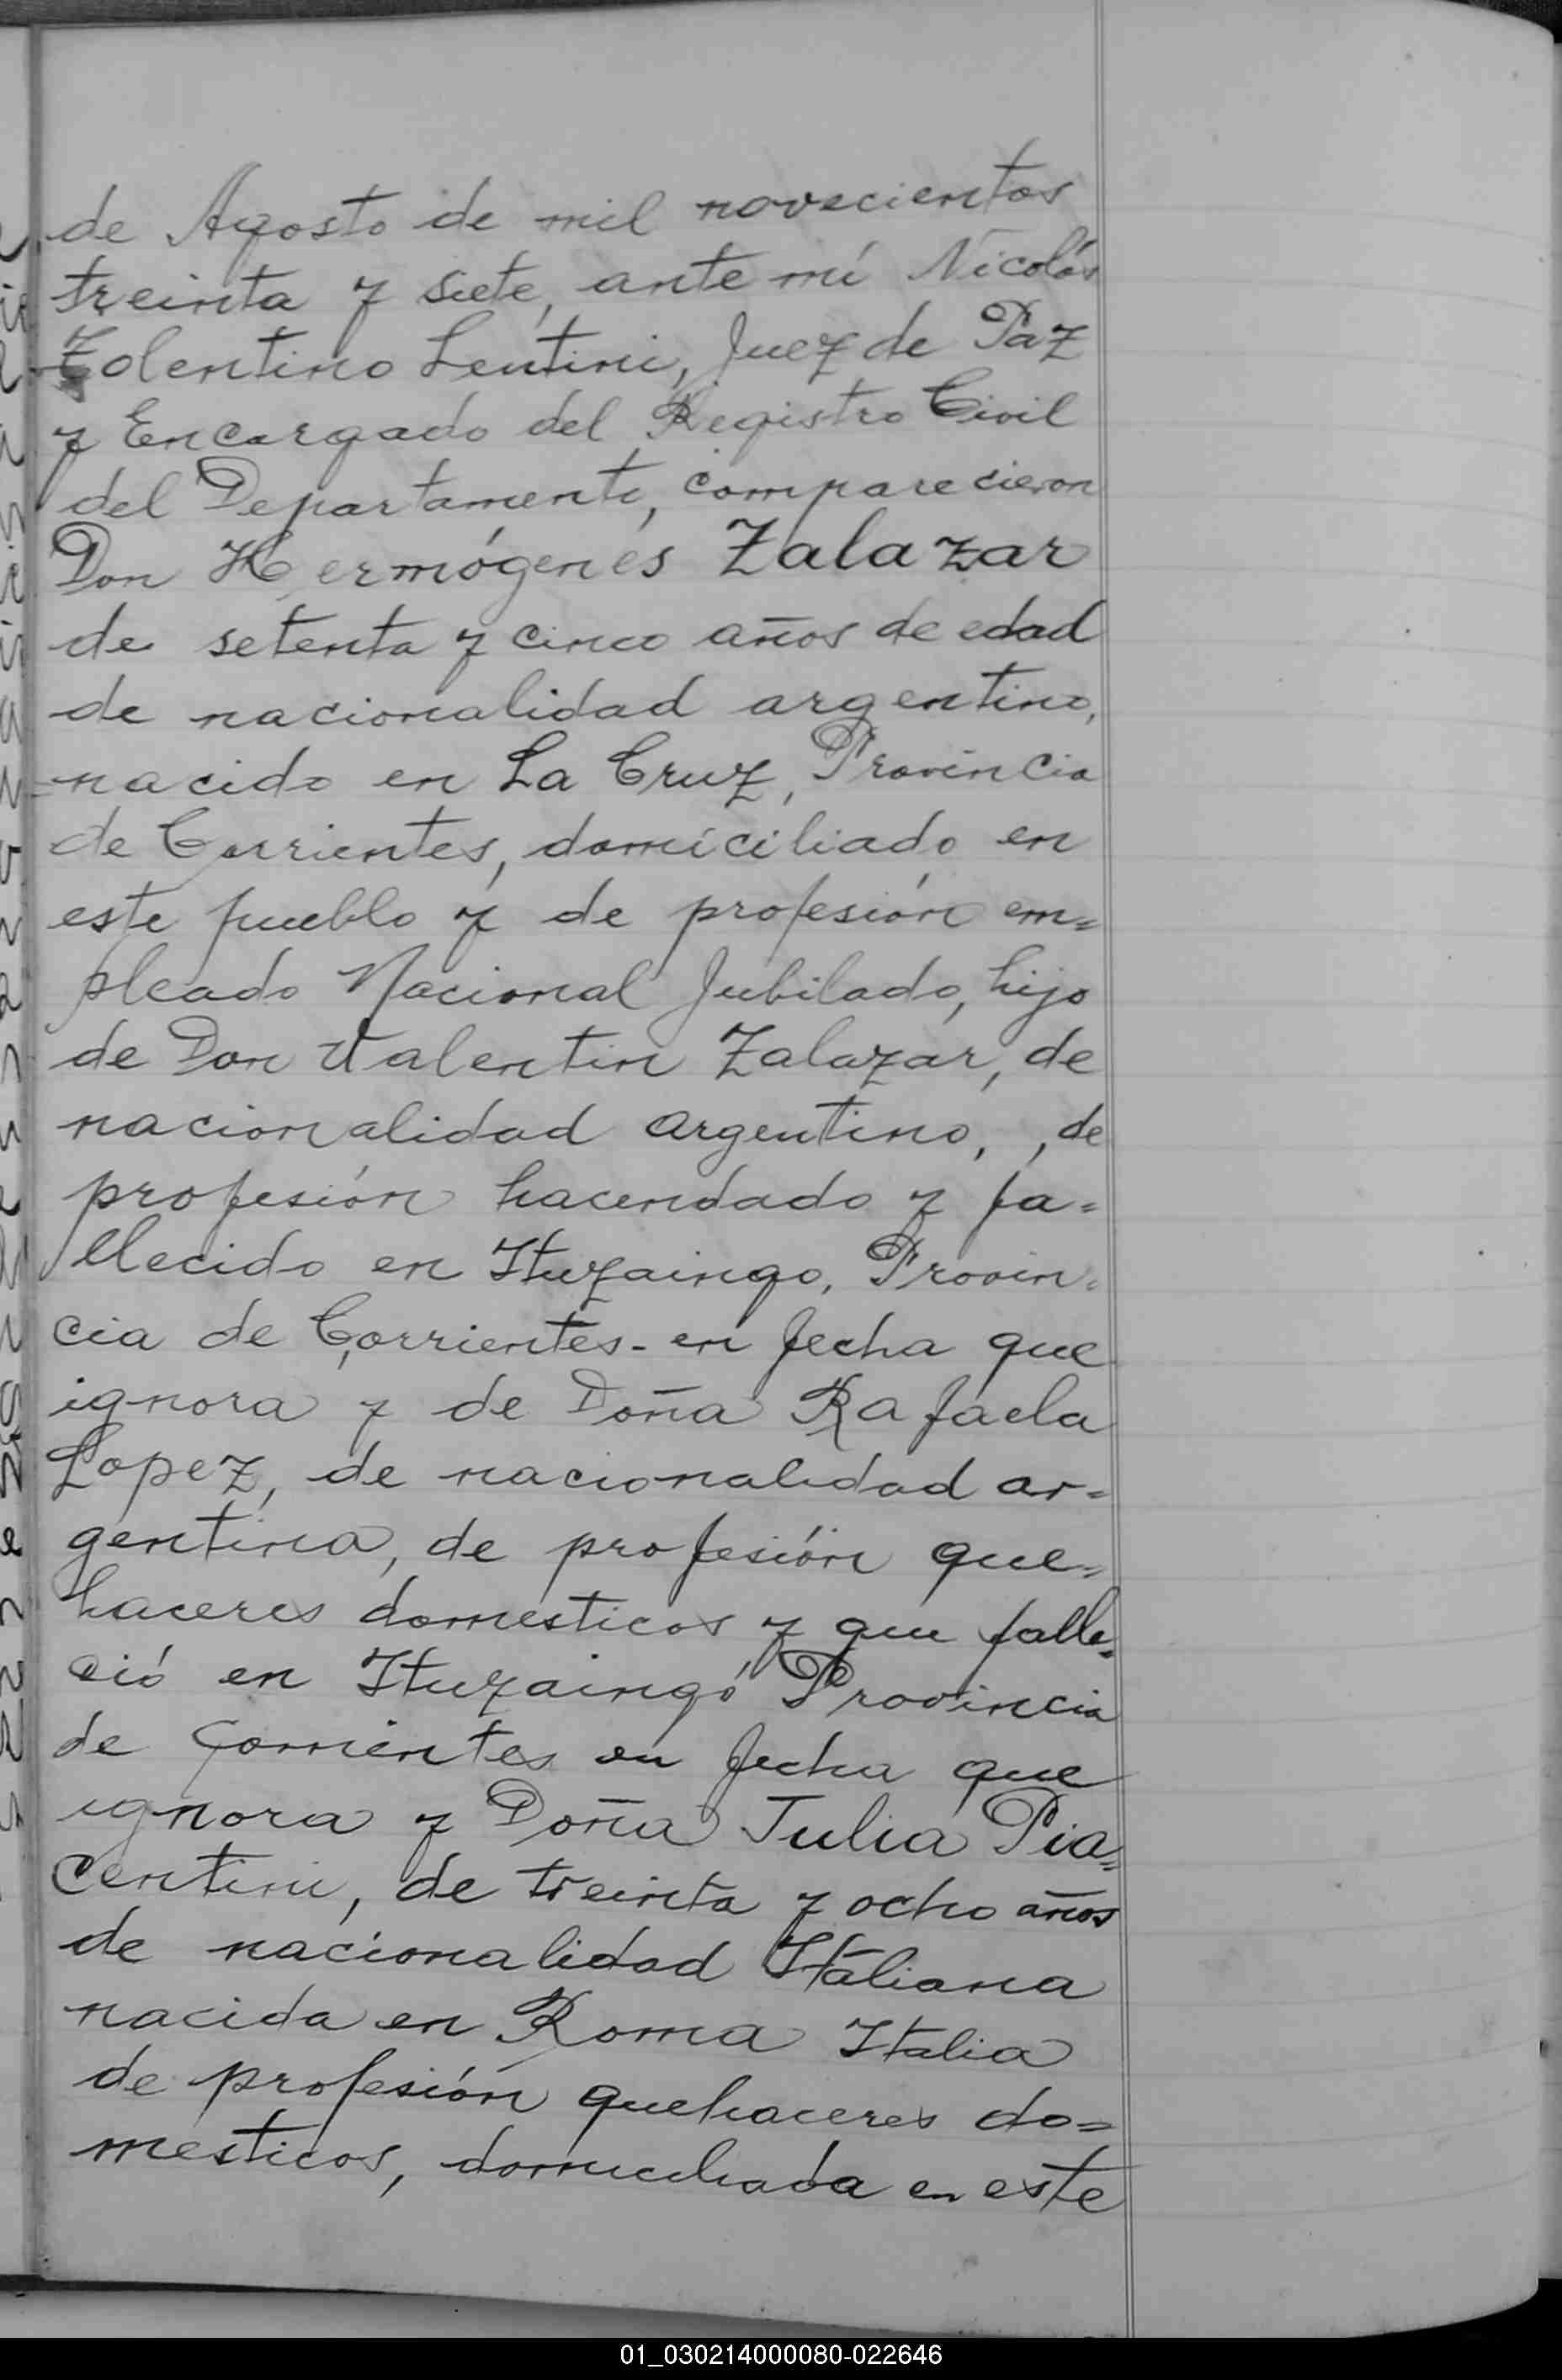 de Agosto de mil novecientos
treinta y siete, ante mí Nicolás
Tolentino Lentini, Juez de Paz
y Encargado del Registro Civil
del Departamento, comparecieron
Don Hermógenes Zalazar
de setenta y cinco años de edad
de nacionalidad argentino,
nacido en La Cruz, Provincia
de Corrientes, domiciliado en
este pueblo y de profesión em=
pleado Nacional Jubilado, hijo
de Don Valentin Zalazar, de
nacionalidad argentino, , de
profesión hacendado y fa=
llecido en Ituzaingo, Provin=
cia de Corrientes - en fecha que
ignora y de Doña Rafaela
Lopez, de nacionalidad ar=
gentina, de profesión que=
haceres domesticos y que falle=
ció en Ituzaingó Provincia
de Corrientes en fecha que
ignora y Doña Julia Pia=
centini, de treinta y ocho años
de nacionalidad Italiana
nacida en Roma Italia
de profesión quehaceres do=
mesticos, domiciliada en este
01_030214000080-022646